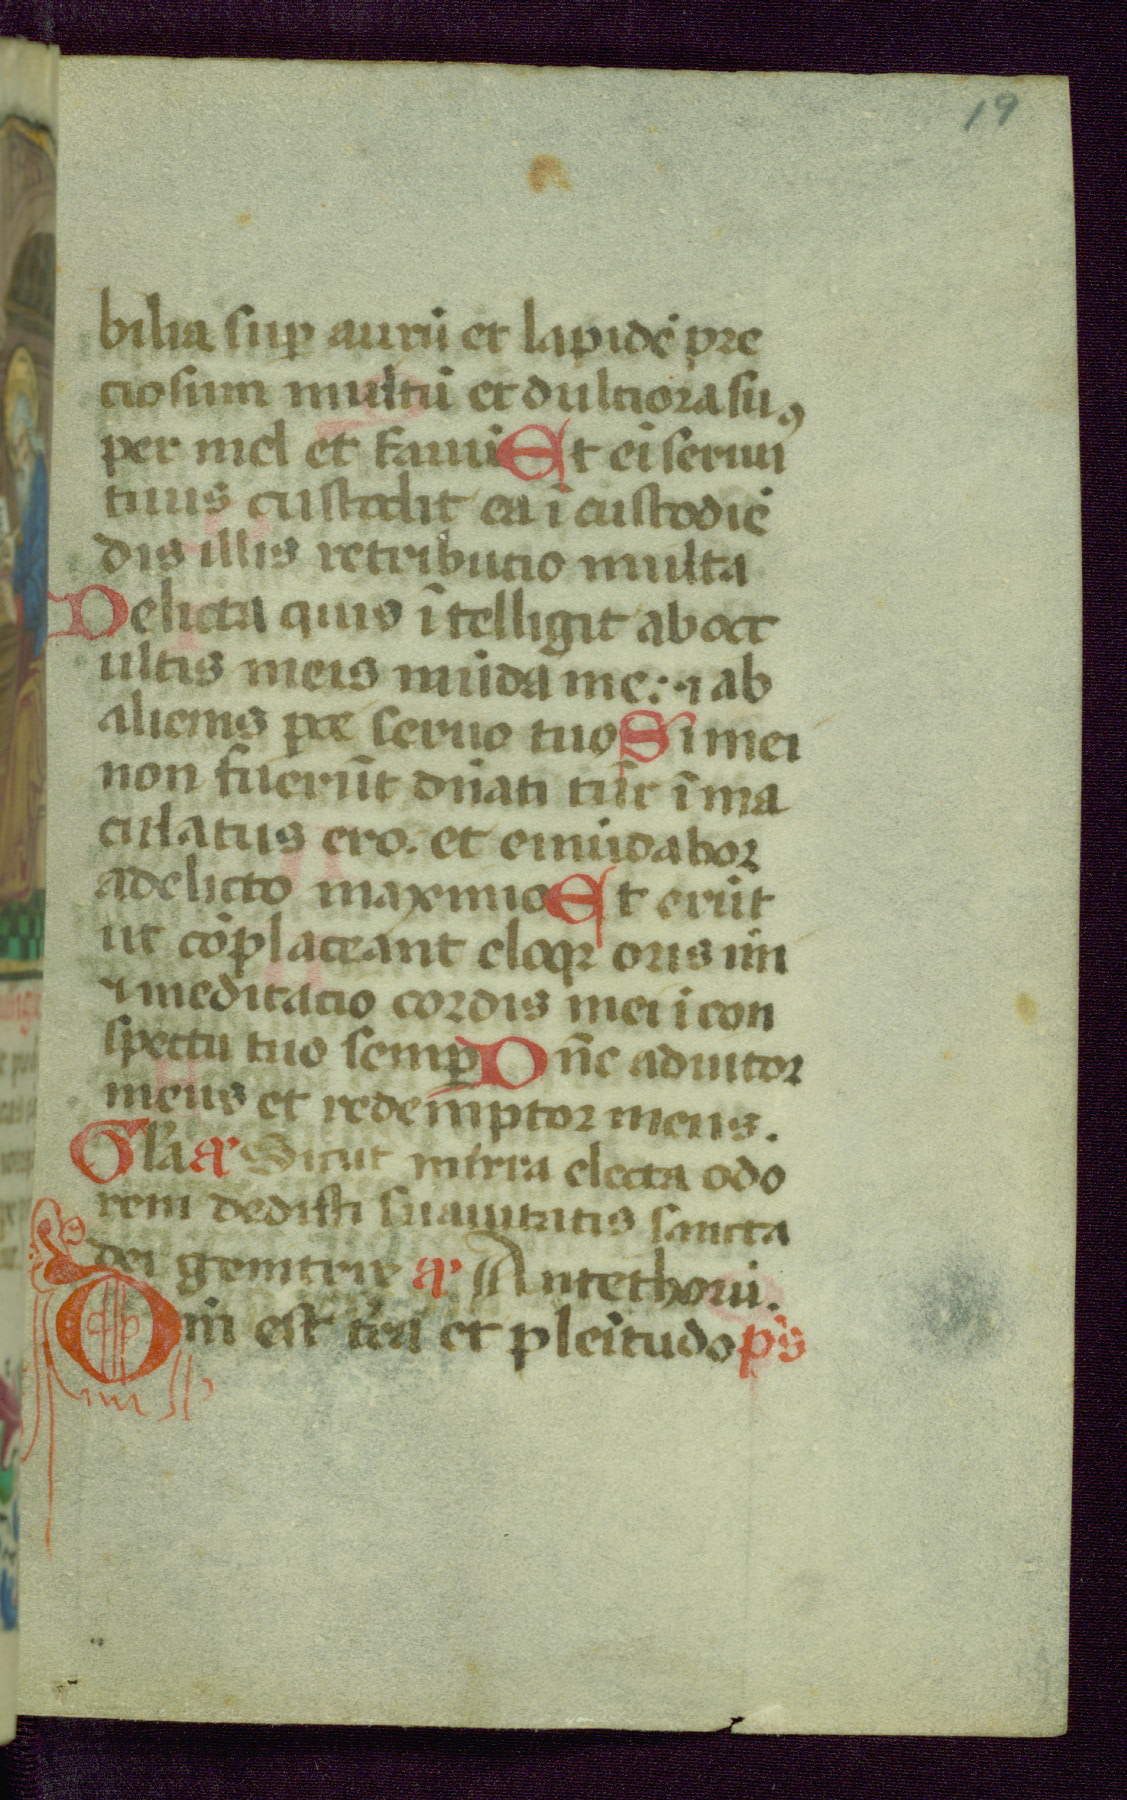 19
bilia sup aurū et lapidē pre
ciosum multū et dulciora su
per mel et faui Et ei seruu
tuus custodit ea ī custodiē
dis illis retributio multa
Delicta quis ītelligit ab occ
ultis meis mūda me: ⁊ ab
alienis pce seruo tuo Si mei
non fuerūt dn̄ati tūc īma
culatus ero. et emūdabor
a delicto maximo Et erūt
ut cōplaceant eloqr oris mī
⁊ meditacio cordis mei ī con
spectu tuo semp Dn̄e adiutor
meus et redēmptor meus.
Gl'a a' Sicut mirra electa odo
rem dedisti suauitatis sancta
dei genitrix a' Antethorū.
Dn̄i est t'ra et pleītudo ps